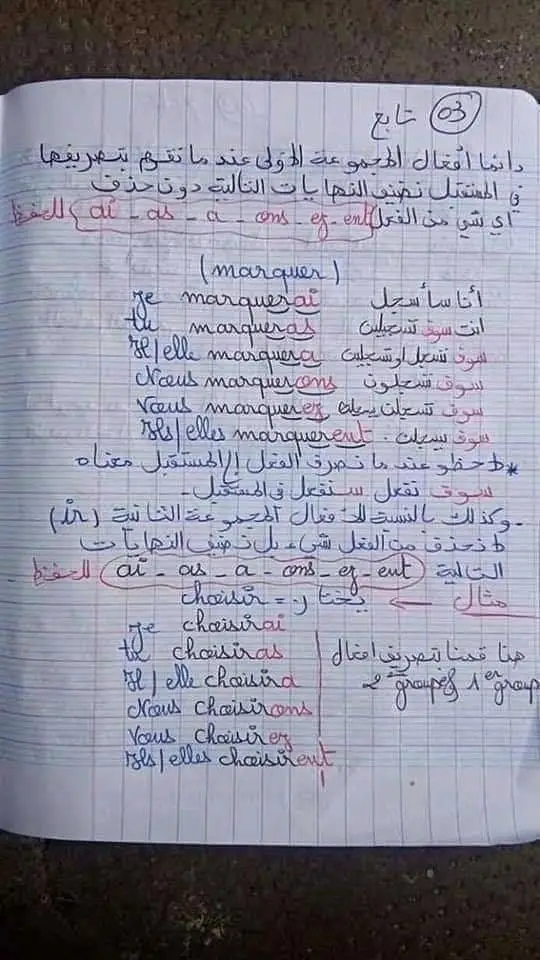 03 تابع
دائما أفعال المجموعة الأولى عند ما نقوم بتصريفها
في المستقبل نضيف النهايات التالية دون حذف
أي شيء من الفعل ai - as - a - ons - ez - ent للحفظ
(marquer)
je marquerai أنا سأسجل
tu marqueras أنت سوف تسجلين
Il/elle marquera سوف تسجل أو تسجلين
Nous marquerons سوف تسجلون
Vous marquerez سوف
Ils/elles marquerent . سوف يسجلن
* لاحظو عند ما نصرف الفعل إلى المستقبل معناه
سوف تفعل ستفعل في المستقبل.
- وكذلك بالنسبة لأفعال المجموعة الثانية (ir)
لا نحذف من الفعل شيء بل نضيف النهايات
التالية ai - as - a - ons - ez - ent للحفظ
مثال ← يختار = choisir
je choisirai
tu choisiras
Il / elle choisira
Nous choisirons
Vous choisirez
Ils/elles choisirent
هنا قمنا بتصريف أفعال
1er group 2ème group